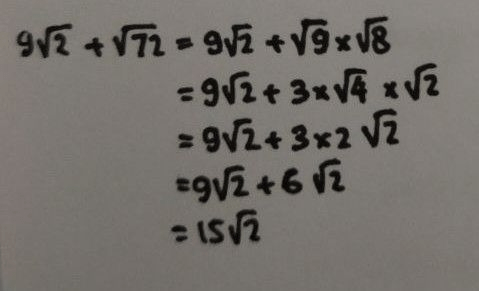 9√2 + √72 = 9√2 + √9 × √8
= 9√2 + 3 × √4 × √2
= 9√2 + 3 × 2 √2
= 9√2 + 6 √2
= 15√2